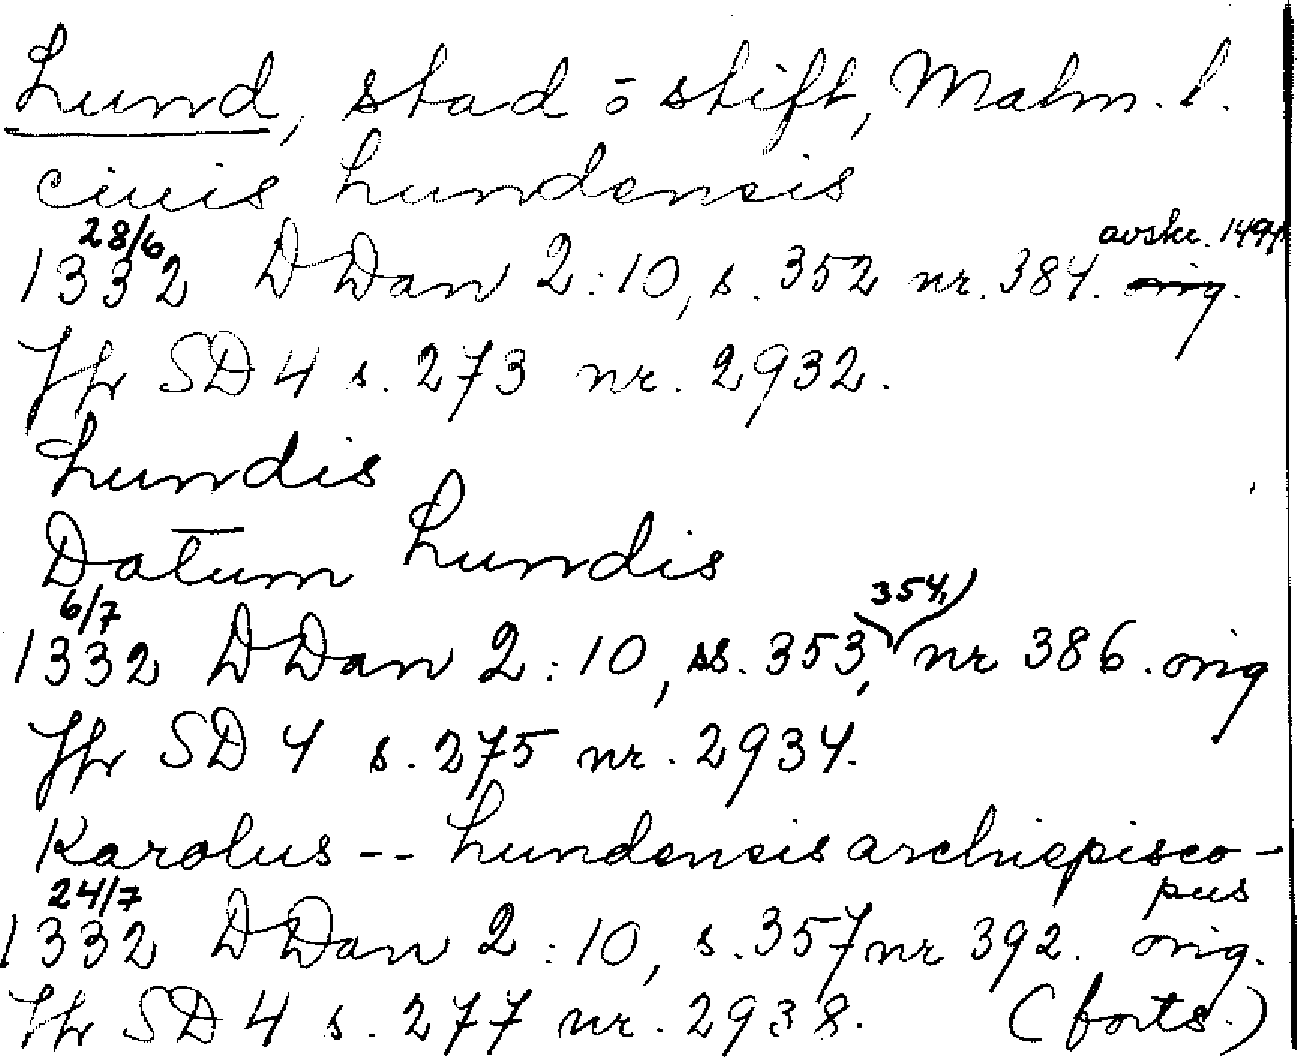 Lund, stad o stift, Malm. l.
civis Lundensis
28/6 avskr. 1494
1332 DDan 2:10, s. 352 nr. 384. orig.
Jfr SD 4 s. 273 nr. 2932.
Lundis
Datum Lundis
6/7 354,
1332 DDan 2:10, ss. 353, nr 386. orig
Jfr SD 4 s. 275 nr. 2934.
Karolus -- Lundensis archiepisco-
24/7 pus
1332 DDan 2:10, s. 357 nr 392. orig.
Jfr SD 4 s. 277 nr. 2938. (forts.)